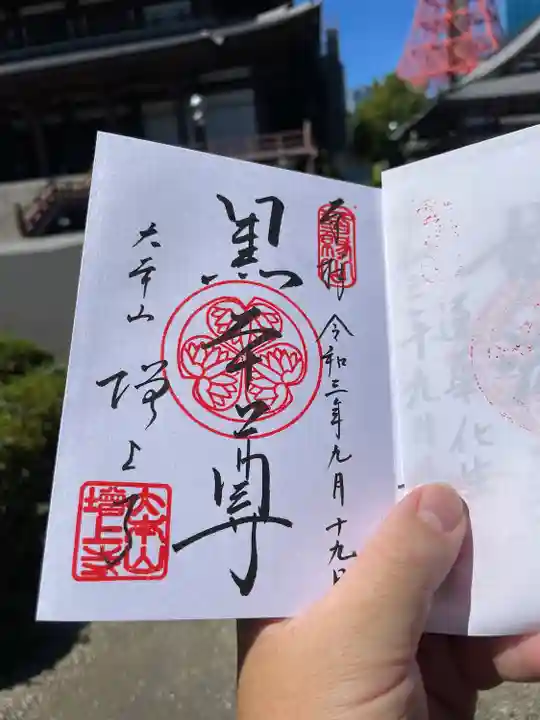 奉拝
令和三年九月十九日
黒本尊
大本山
増上寺
大本山
増上寺